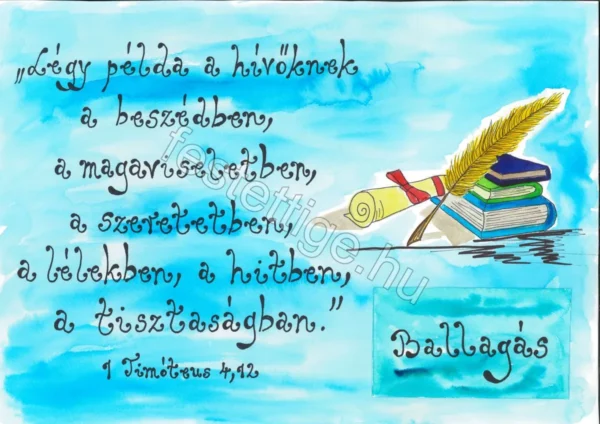 „Légy példa a hívőknek
a beszédben,
a magaviseletben,
a szeretetben,
a lélekben, a hitben,
a tisztaságban."
1 Timóteus 4,12
Ballagás
festettige.hu